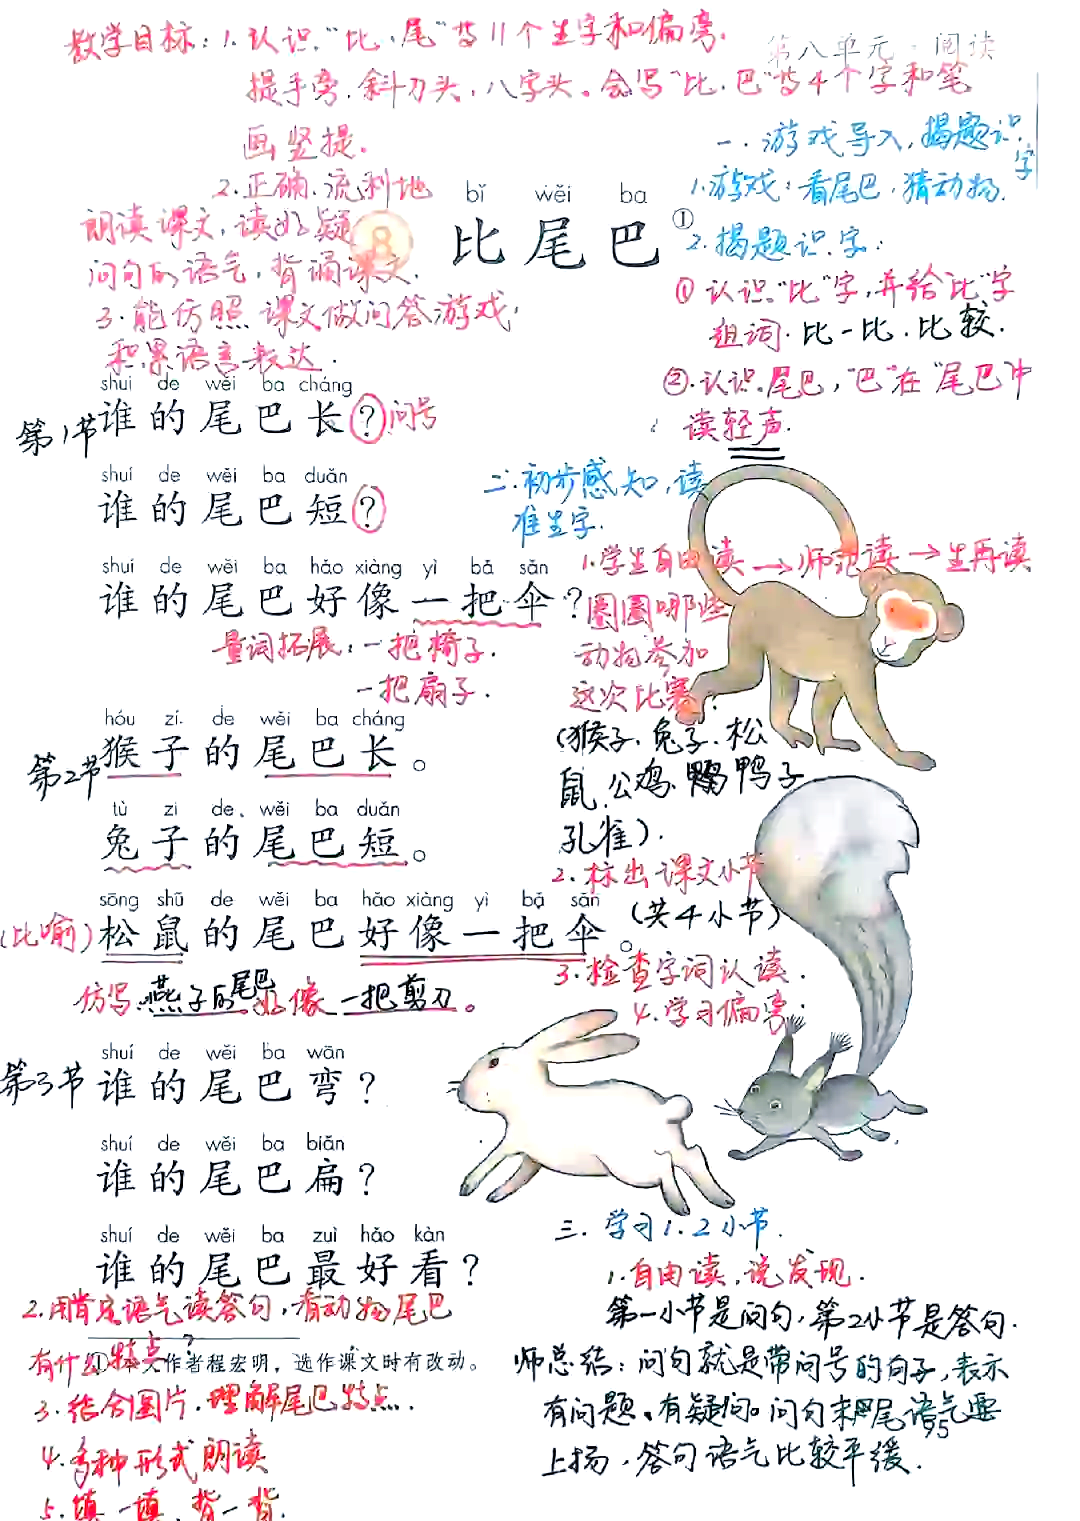 教学目标：1.认识“比、尾”等11个生字和偏旁
第八单元·阅读
提手旁、斜刀头、八字头。会写“比、巴”等4个字和笔
画竖提。
2.正确、流利地
朗读课文，读好疑
问句的语气，背诵课文.
3.能仿照课文做问答游戏.
积累语言表达.
一.游戏导入,揭题识字
1.游戏：看尾巴,猜动物.
2.揭题识字：
①认识“比”字,并给“比”字
组词.比一比.比较.
②.认识尾巴,“巴”在“尾巴”中
读轻声.
8
bǐ wěi ba
比尾巴①
shuí de wěi ba cháng
第1节 谁的尾巴长？问号
shuí de wěi ba duǎn
谁的尾巴短？
shuí de wěi ba hǎo xiàng yì bǎ sǎn
谁的尾巴好像一把伞？
量词拓展：一把椅子.
一把扇子.
hóu zi de wěi ba cháng
第2节 猴子的尾巴长。
tù zi de wěi ba duǎn
兔子的尾巴短。
sōng shǔ de wěi ba hǎo xiàng yì bǎ sǎn
(比喻) 松鼠的尾巴好像一把伞。
仿写:燕子的尾巴好像一把剪刀。
shuí de wěi ba wān
第3节 谁的尾巴弯？
shuí de wěi ba biǎn
谁的尾巴扁？
shuí de wěi ba zuì hǎo kàn
谁的尾巴最好看？
二.初步感知,读
准生字.
1.学生自由读→师范读→生再读
圈圈哪些
动物参加
这次比赛.
(猴子.兔子.松
鼠.公鸡.鸭子
孔雀).
2.标出课文小节
(共4小节)
3.检查字词认读.
4.学习偏旁.
三.学习1.2小节.
1.自由读,说发现.
第一小节是问句,第2小节是答句.
师总结：问句就是带问号的句子,表示
有问题、有疑问。问句末尾语气要
上扬,答句语气比较平缓.
2.用肯定语气读答句,看动物尾巴
有什么特点？
①本文作者程宏明，选作课文时有改动。
3.结合图片.理解尾巴特点.
4.多种形式朗读
5.填一填、背一背.
95